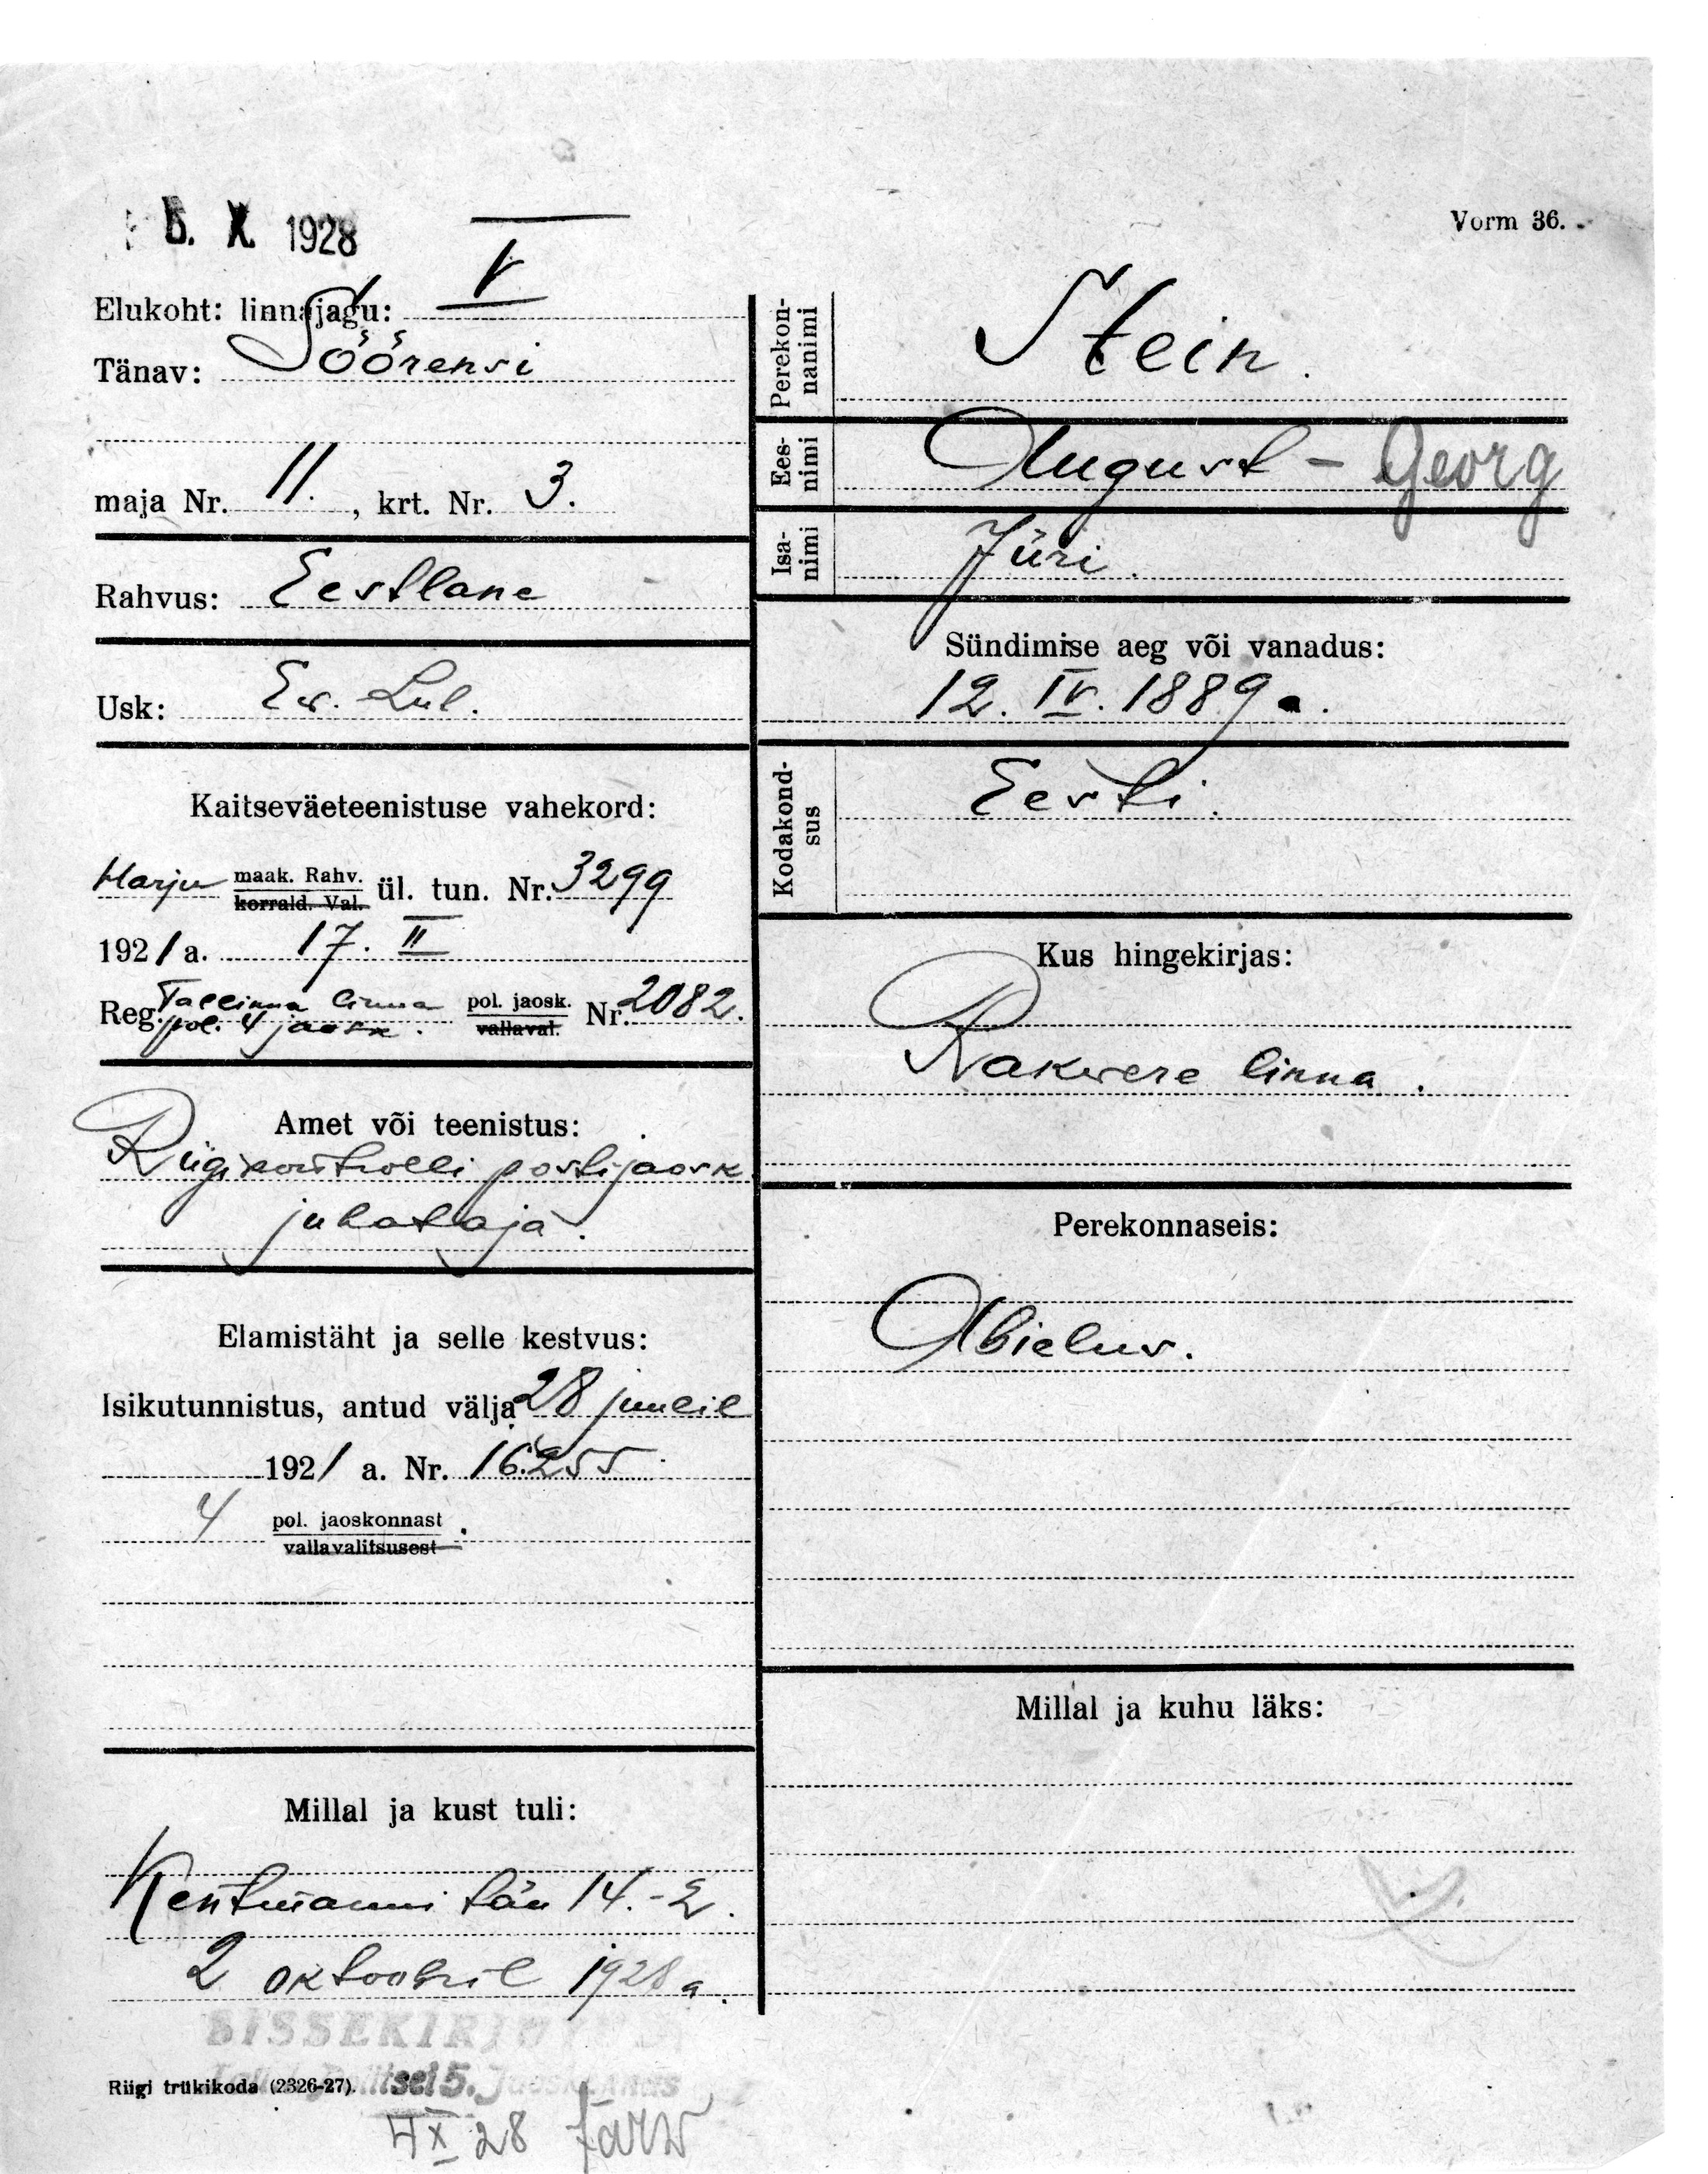 5. X. 1928
Vorm 36.
Elukoht: linnajagu: V
Tänav: Söörensi
maja Nr. 11., krt. Nr. 3.
Rahvus: Eestlane
Usk: Ev. Lut.
Kaitseväeteenistuse vahekord:
Harju maak. Rahv. ül. tun. Nr. 3299
korrald. Val.
1921 a. 17. II
Reg. Tallinna linna pol. jaosk. Nr. 2082.
pol. 4 jaosk. vallaval.
Amet või teenistus:
Riigikontrolli postijaosk.
juhataja.
Elamistäht ja selle kestvus:
Isikutunnistus, antud välja 28 juulil
1921 a. Nr. 16255
4 pol. jaoskonnast.
vallavalitsusest
Millal ja kust tuli:
Kentmanni tän 14.-2.
2 oktoobril 1928 a.
SISSEKIRJUTUD
Riigi trükikoda (2326-27).
Politsei 5. Jaoskonnas
4 X 28 Järw
Perekon-
nanimi
Stein.
Ees-
nimi
August - Georg
Isa-
nimi
Jüri.
Sündimise aeg või vanadus:
12. IV. 1889 a.
Kodakond-
sus
Eesti.
Kus hingekirjas:
Rakwere linna.
Perekonnaseis:
Abielus.
Millal ja kuhu läks: